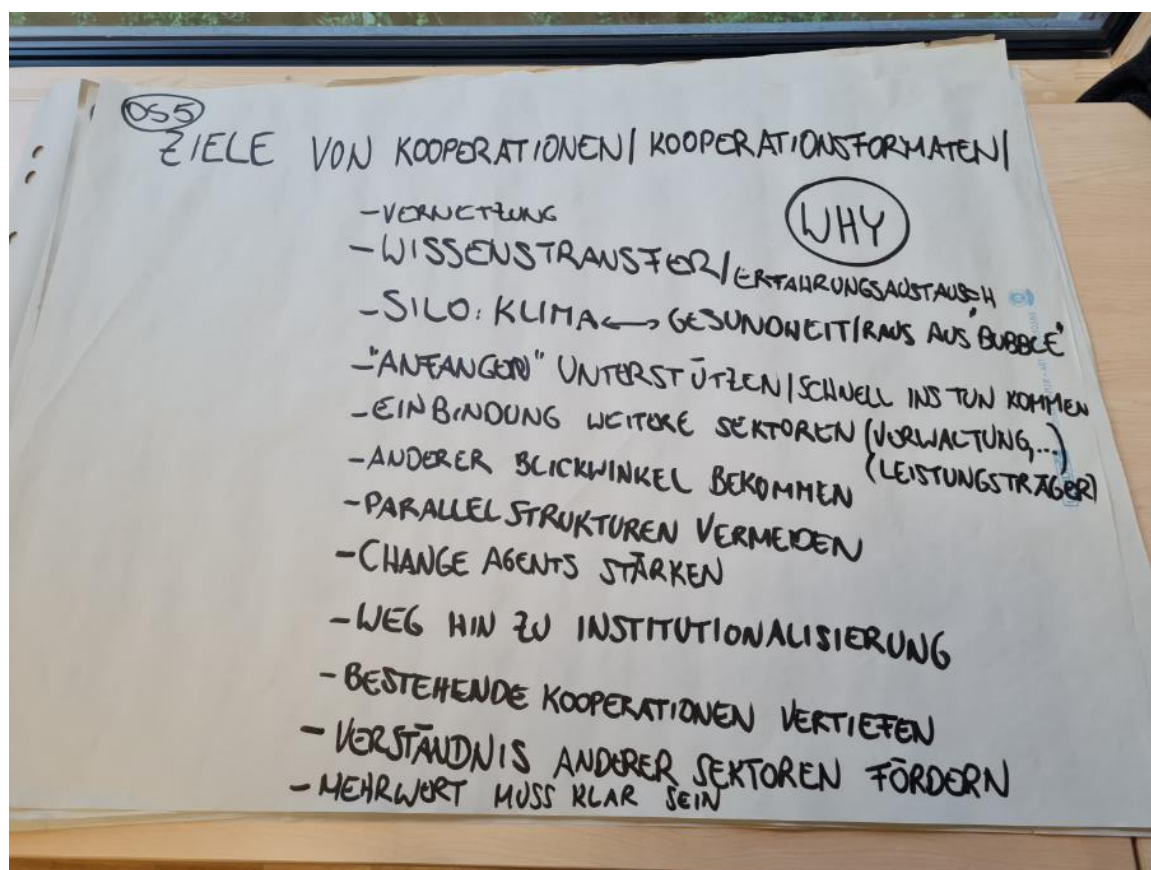 DS5
ZIELE VON KOOPERATIONEN/ KOOPERATIONSFORMATEN/
WHY
-VERNETZUNG
-WISSENSTRANSFER/ERFAHRUNGSAUSTAUSCH
-SILO: KLIMA ↔ GESUNDHEIT/RAUS AUS "BUBBLE"
-"ANFANGEN" UNTERSTÜTZEN/SCHNELL INS TUN KOMMEN
-EINBINDUNG WEITERE SEKTOREN (VERWALTUNG,...)
(LEISTUNGSTRÄGER)
-ANDERER BLICKWINKEL BEKOMMEN
-PARALLELSTRUKTUREN VERMEIDEN
-CHANGE AGENTS STÄRKEN
-WEG HIN ZU INSTITUTIONALISIERUNG
-BESTEHENDE KOOPERATIONEN VERTIEFEN
-VERSTÄNDNIS ANDERER SEKTOREN FÖRDERN
-MEHRWERT MUSS KLAR SEIN